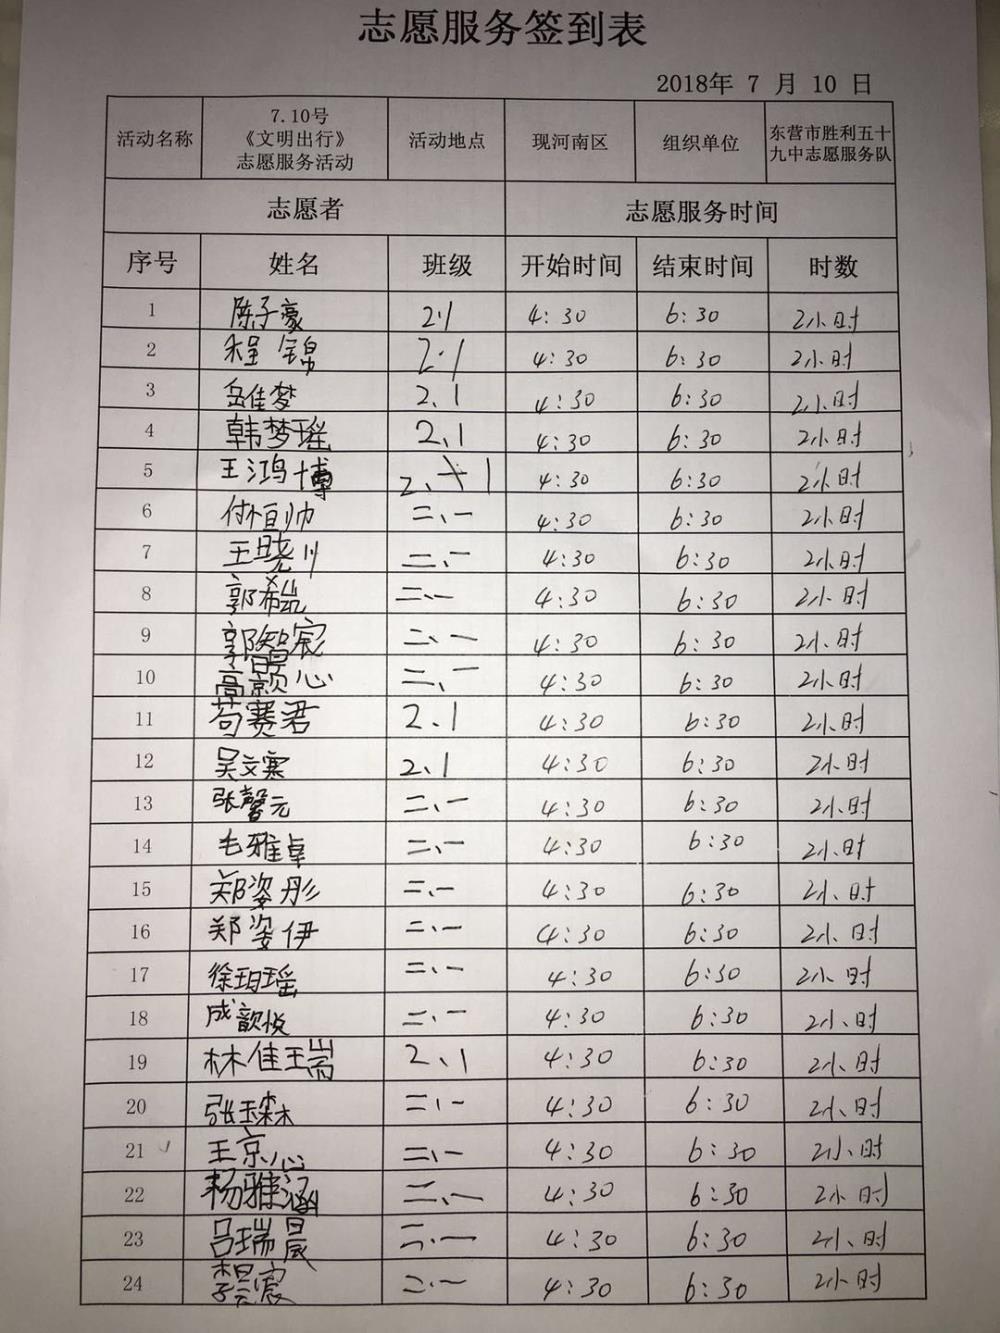 志愿服务签到表
2018年 7 月 10 日
活动名称 7.10号《文明出行》志愿服务活动 活动地点 现河南区 组织单位 东营市胜利五十九中志愿服务队
志愿者 志愿服务时间
序号 姓名 班级 开始时间 结束时间 时数
1 陈子豪 2.1 4:30 6:30 2小时
2 程锦 2.1 4:30 6:30 2小时
3 岳佳梦 2、1 4:30 6:30 2小时
4 韩梦瑶 2、1 4:30 6:30 2小时
5 王鸿博 2、1 4:30 6:30 2小时
6 付恒帅 二、一 4:30 6:30 2小时
7 王晓川 二、一 4:30 6:30 2小时
8 郭希凯 二、一 4:30 6:30 2小时
9 郭智宸 二、一 4:30 6:30 2小时
10 高颢心 二、一 4:30 6:30 2小时
11 苟赛君 2、1 4:30 6:30 2小时
12 吴文寒 2、1 4:30 6:30 2小时
13 张馨元 二、一 4:30 6:30 2小时
14 毛雅卓 二、一 4:30 6:30 2小时
15 郑姿彤 二、一 4:30 6:30 2小时
16 郑姿伊 二、一 4:30 6:30 2小时
17 徐珀瑶 二、一 4:30 6:30 2小时
18 成歆悦 二、一 4:30 6:30 2小时
19 林佳瑞 2、1 4:30 6:30 2小时
20 张玉森 二、一 4:30 6:30 2小时
21 王京心 二、一 4:30 6:30 2小时
22 杨雅涵 二、一 4:30 6:30 2小时
23 吕瑞晟 二、一 4:30 6:30 2小时
24 二、一 4:30 6:30 2小时